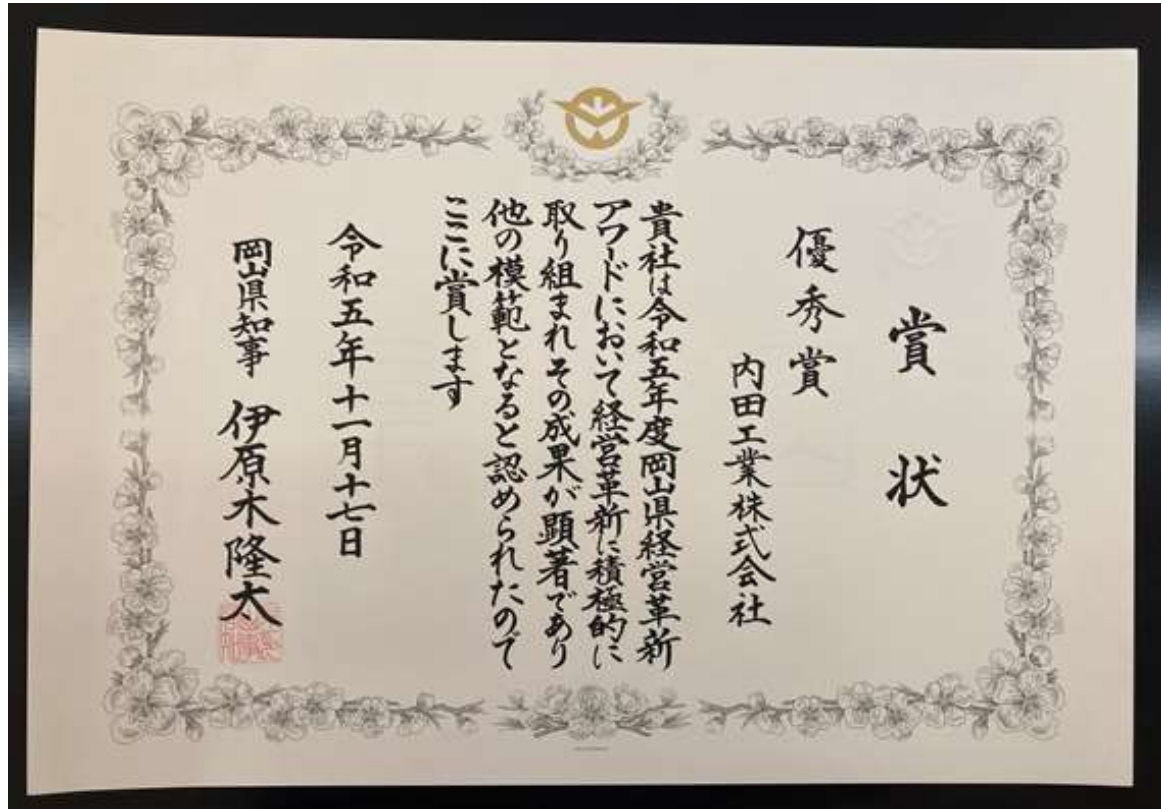 賞状
優秀賞
内田工業株式会社
貴社は令和五年度岡山県経営革新
アワードにおいて経営革新に積極的に
取り組まれその成果が顕著であり
他の模範となると認められたので
ここに賞します
令和五年十一月十七日
岡山県知事 伊原木隆太